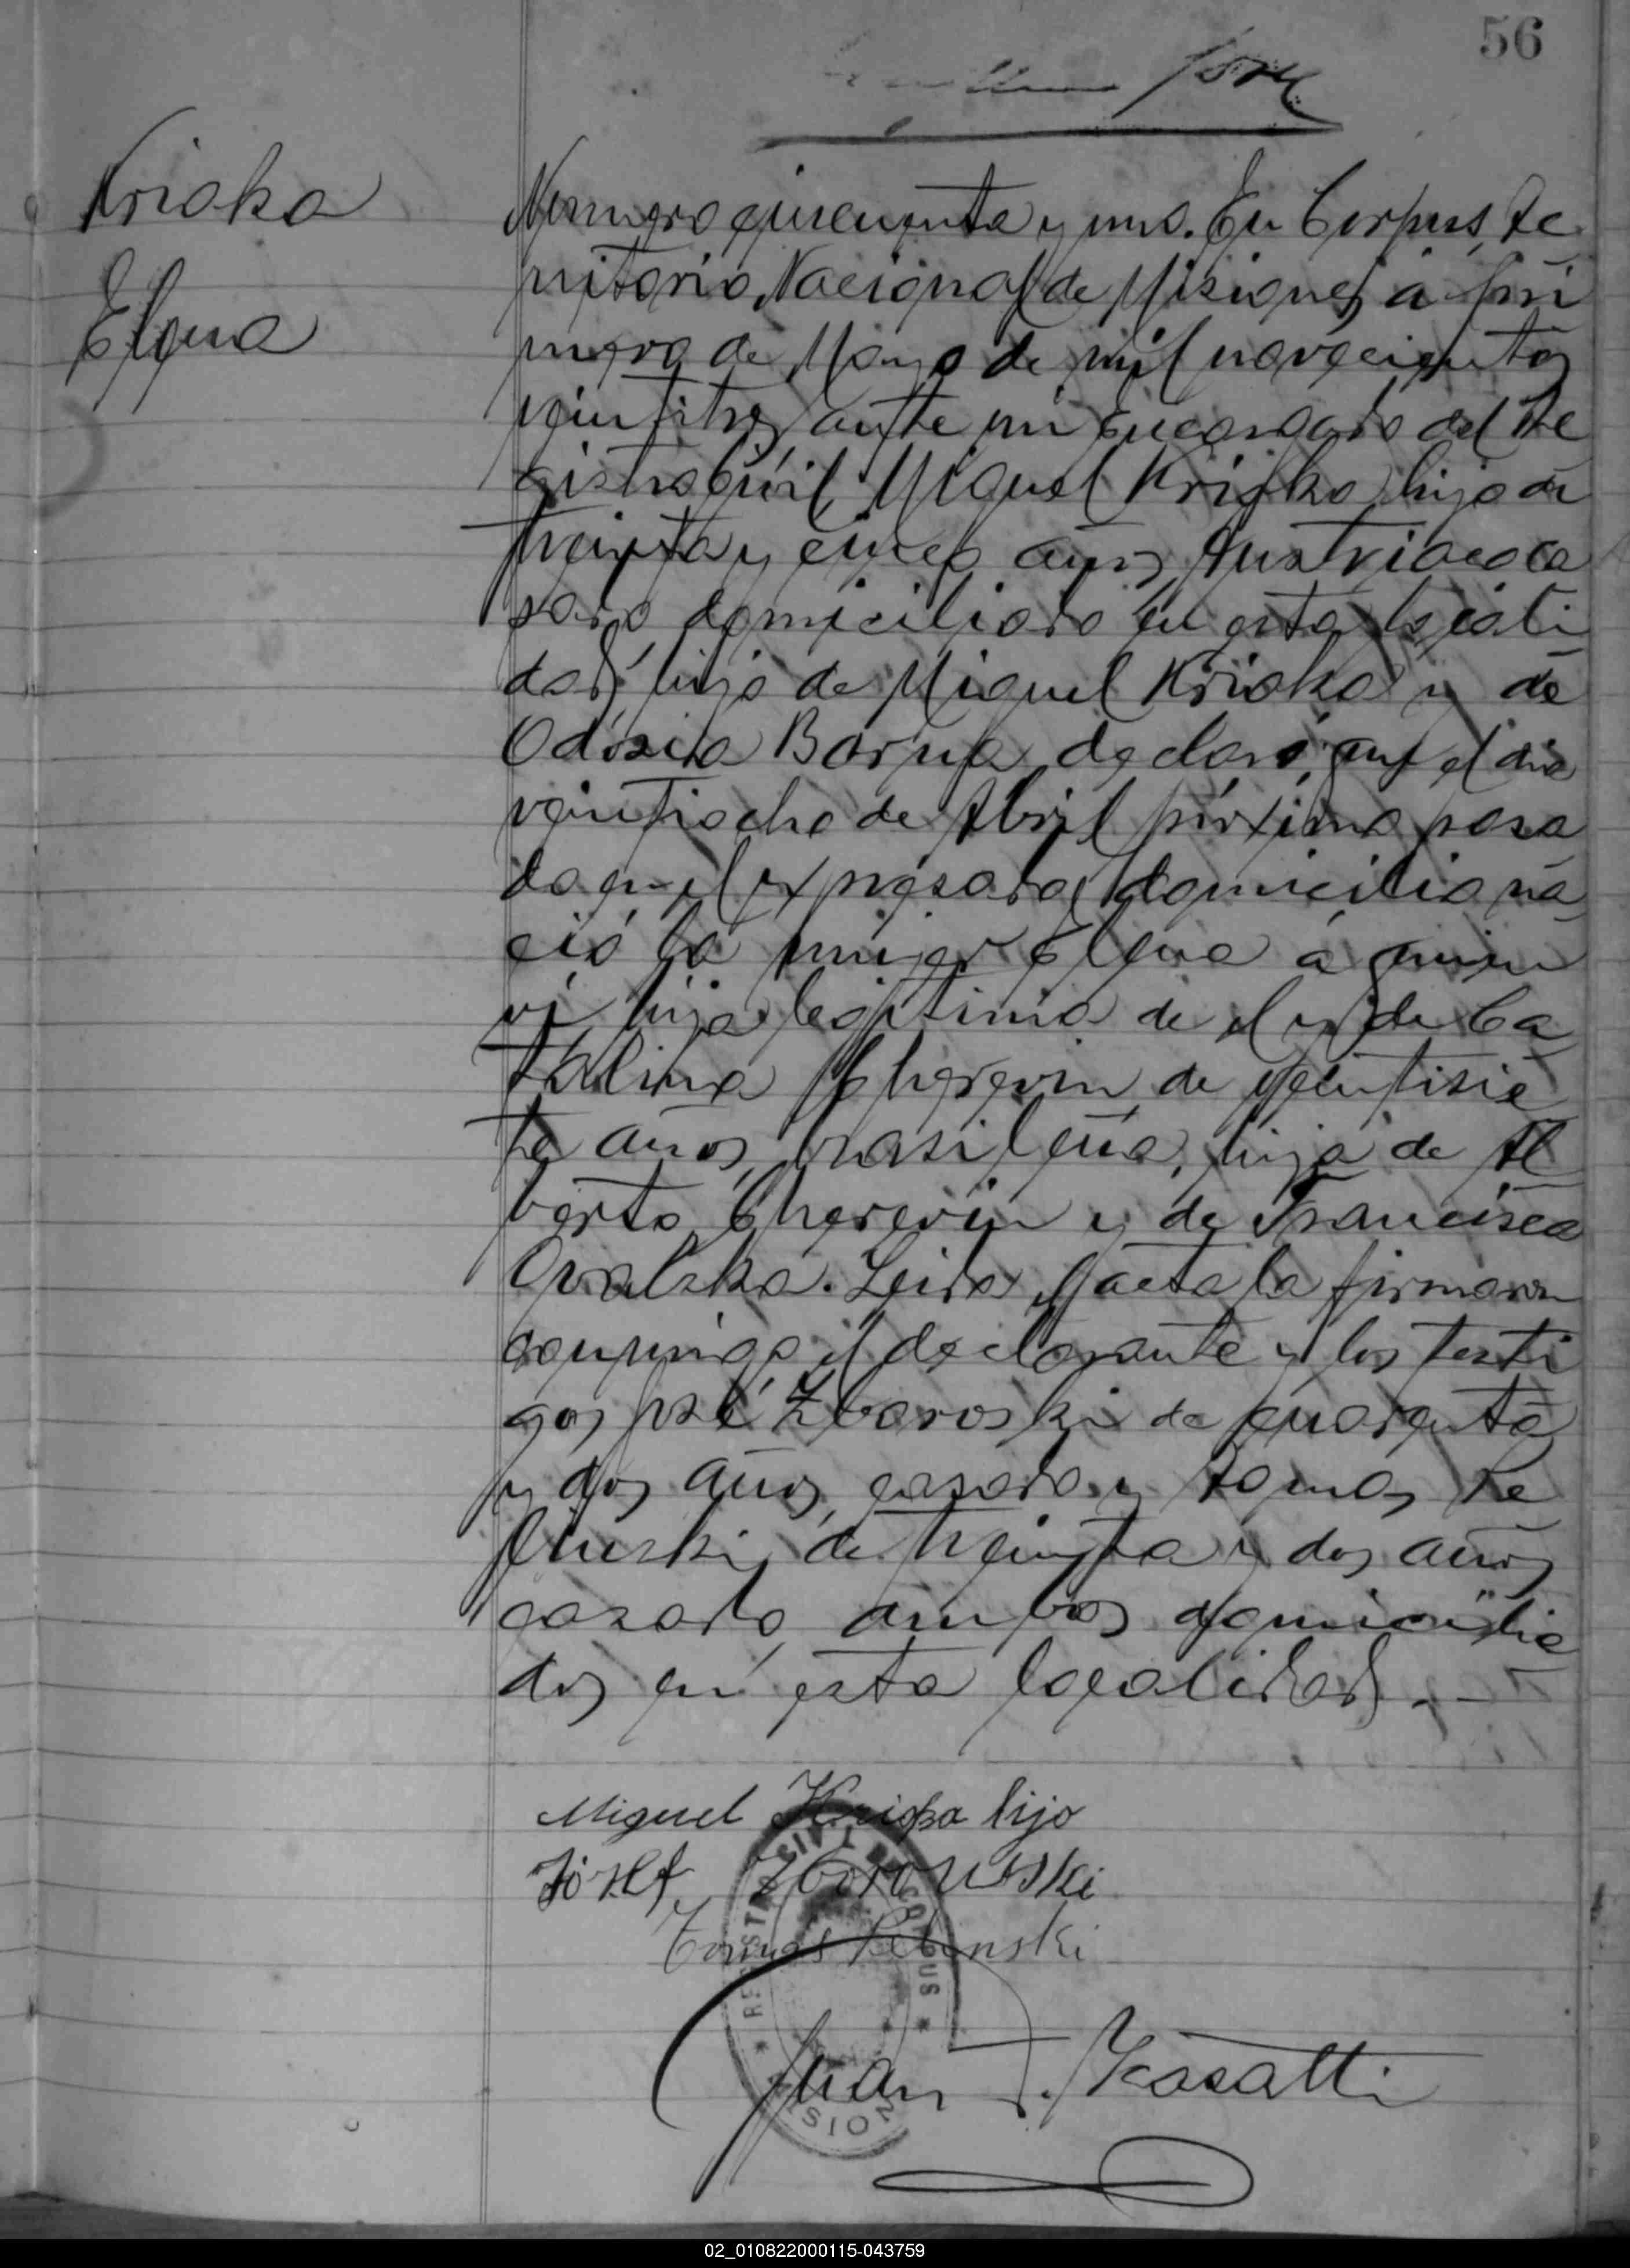 56
Krioka
Elena
Numero cincuenta y uno. En Corpus, Te
rritorio Nacional de Misiones a pri
mero de Mayo de mil novecientos
veintitres ante mi Encargado del Re
gistro Civil, Miguel Krioka hijo de
treinta y cinco años Austriaco ca
sado domiciliado en esta locali
dad, hijo de Miguel Krioka y de
Odosia Borna declaró que el dia
veintiocho de Abril próximo pasa
do en el expresado domicilio na
ció la mujer Elena á quien
vi hija legitima de el y de Ca
talina Cherevin de veintisie
te años, brasileña, hija de Al
berto Cherevin y de Francisca
Ovalska. Leida el acta la firmaron
conmigo el declarante y los testi
gos José Zboroski de cuarenta
y dos años, casado y Tomas Pe
linski, de treinta y dos años
casado ambos domicilia
dos en esta localidad.—
Miguel Krioka hijo
Józef Zborowski
Tomas Pelinski
REGISTRO CIVIL DE CORPUS
MISIONES
Juan J. Kasatti
02_010822000115-043759